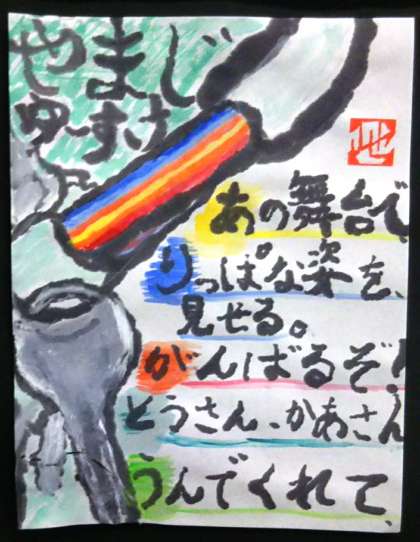 やまじ
ゆーすけ
あの舞台で、
りっぱな姿を、
見せる。
がんばるぞ!
とうさん、かあさん
うんでくれて、